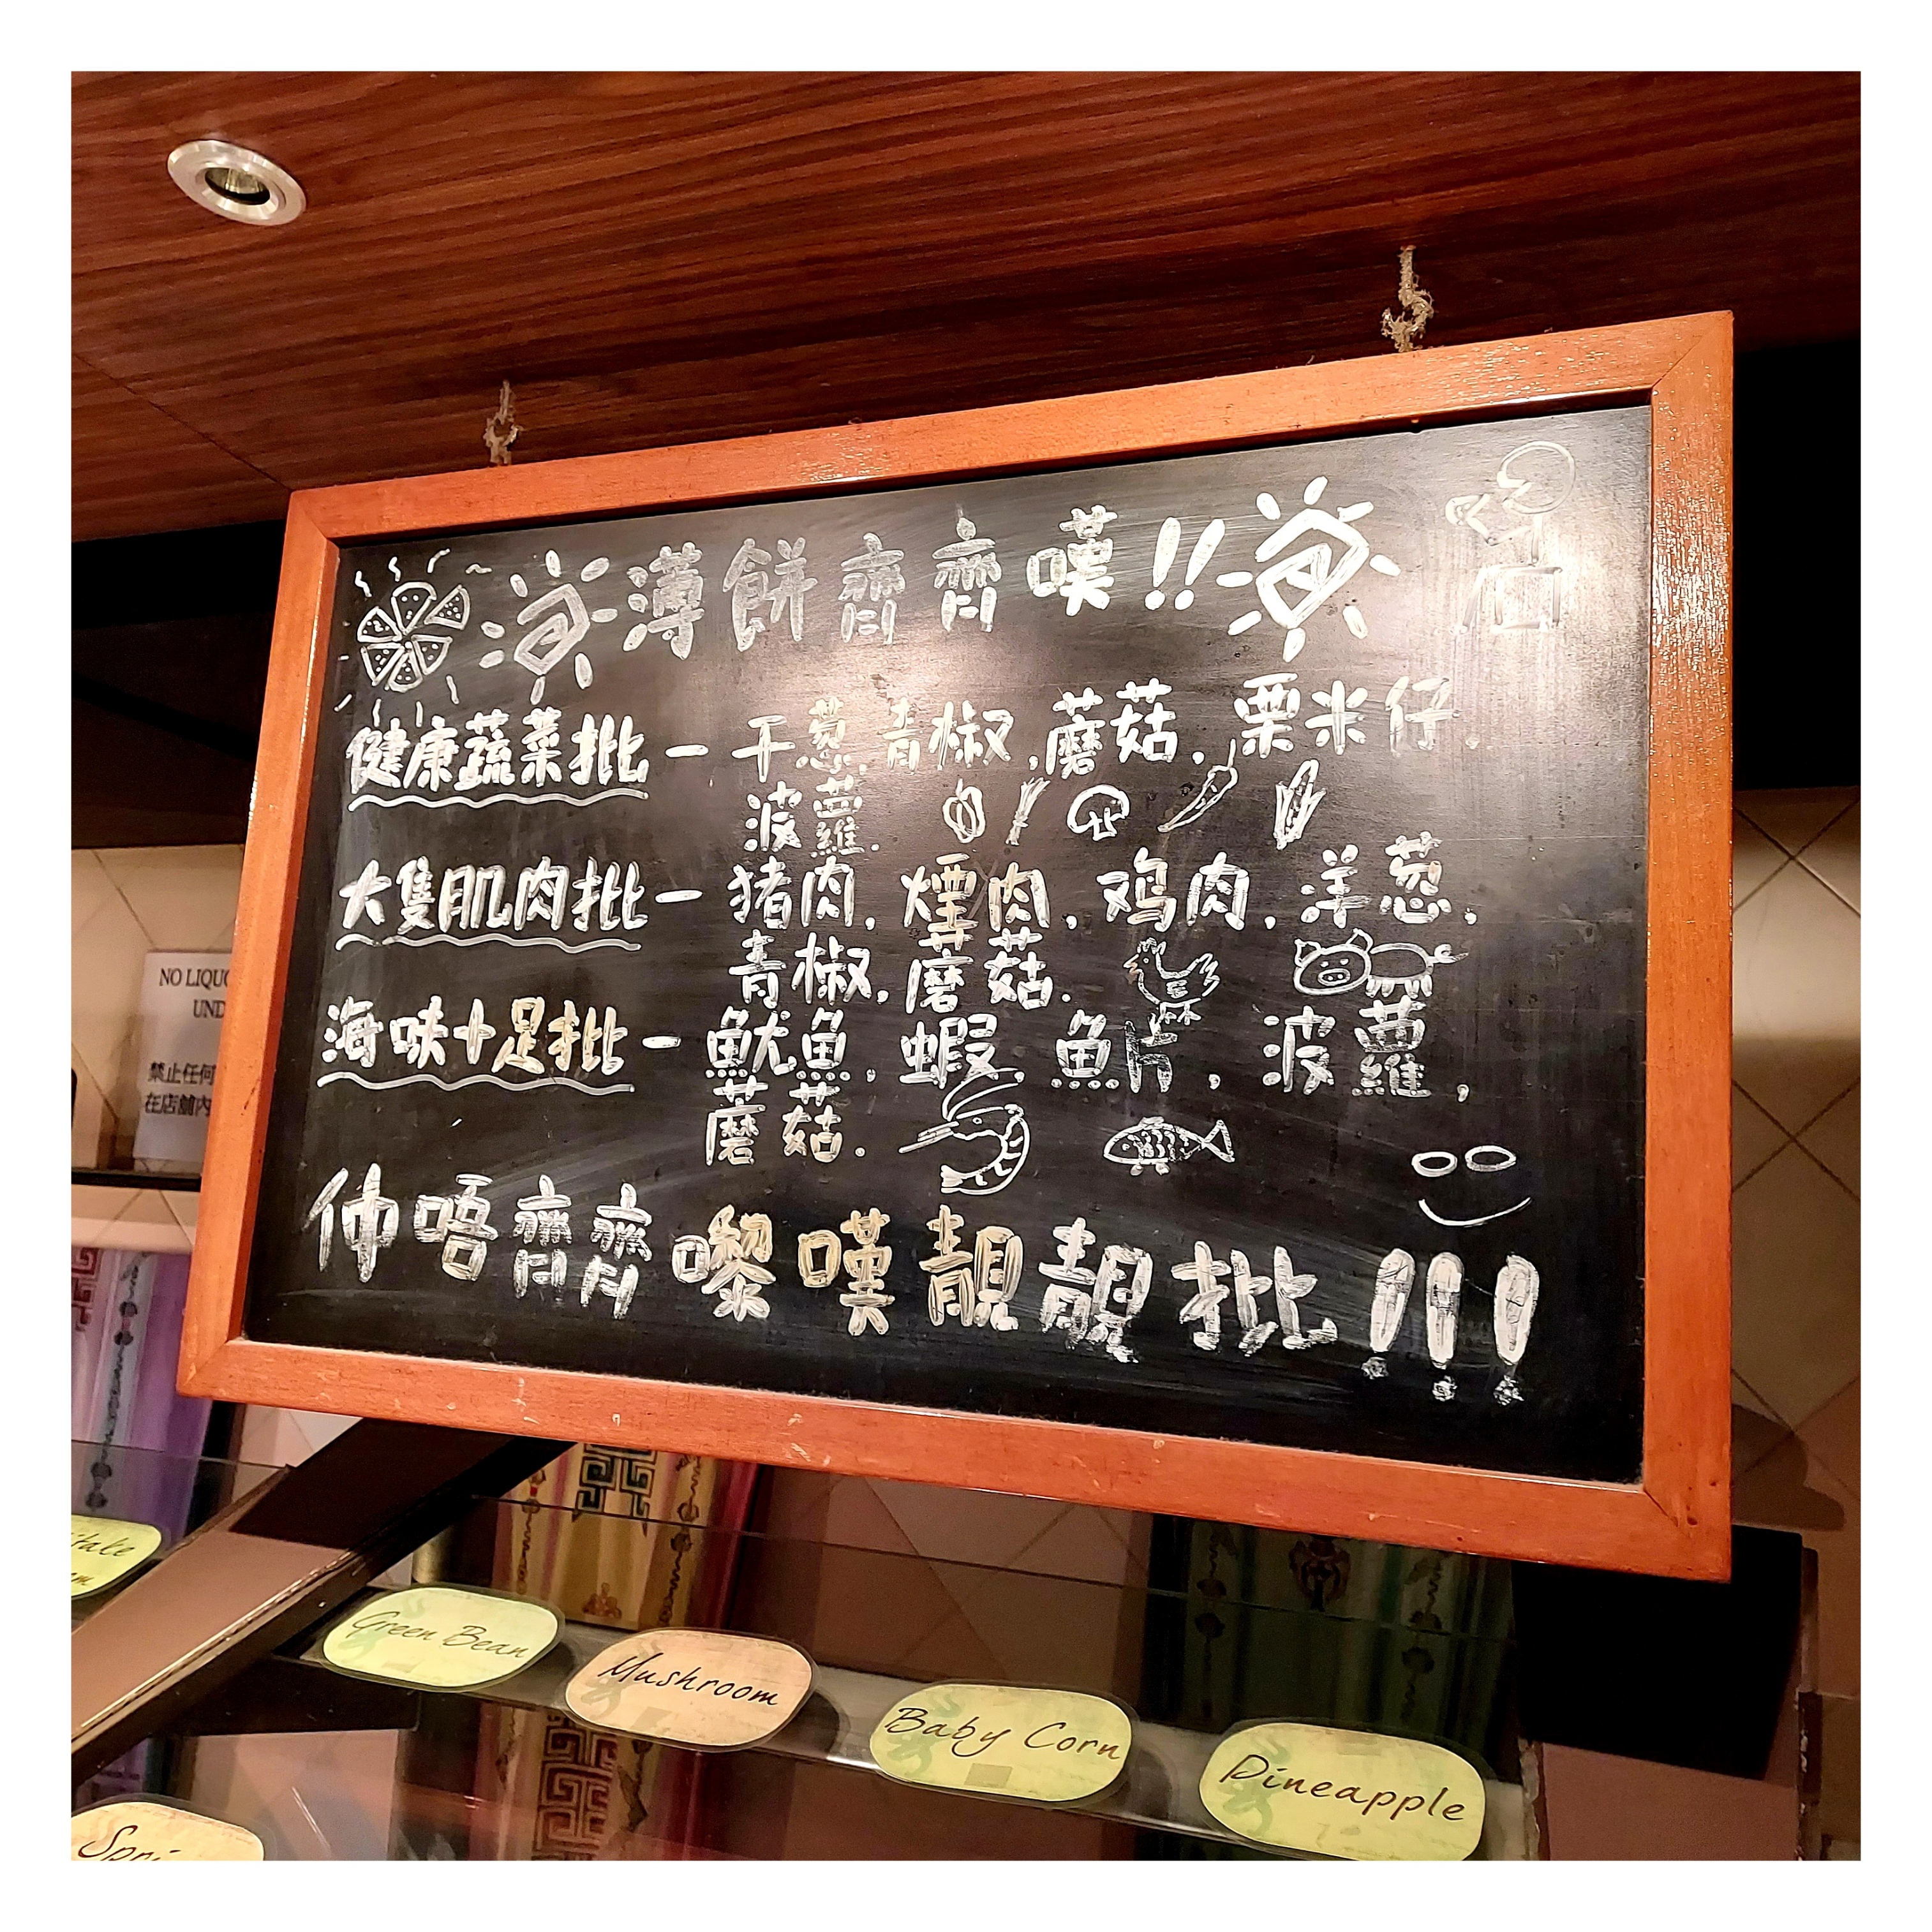 薄餅齊齊嘆!!
健康蔬菜批 - 干葱, 青椒, 蘑菇, 粟米仔,
波蘿.
大隻肌肉批 - 猪肉, 煙肉, 鸡肉, 洋葱,
青椒, 蘑菇.
海味十足批 - 魷魚, 蝦, 魚片, 波蘿,
蘑菇.
仲唔齊齊嚟嘆靚靚批!!!
NO LIQUO
UND
禁止任何
在店舖内
Green Bean
Mushroom
Baby Corn
Pineapple